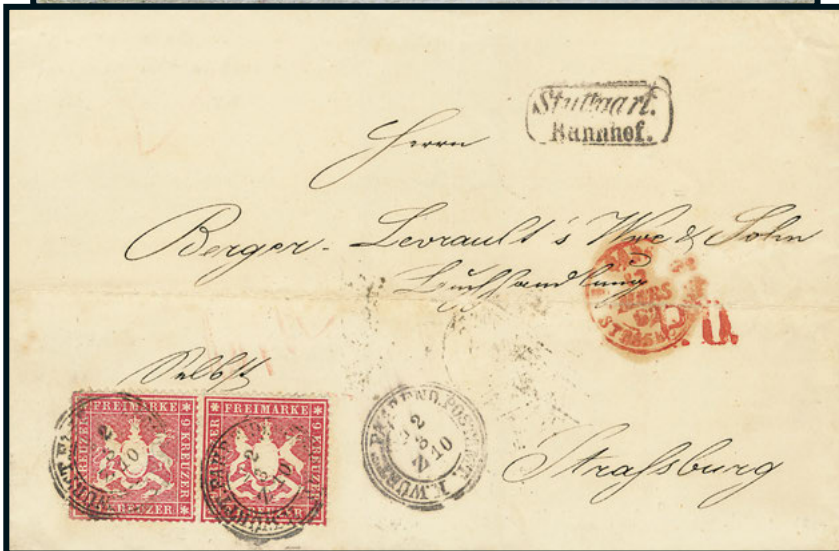 Stuttgart.
Bahnhof.
Herrn
Berger-Levrault's Wwe & Sohn
Buchhandlung
MARS
62
STRASB
P.D.
FREIMARKE
9 KREUZER
FREIMARKE
9 KREUZER
K. WÜRTT. FAHREND. POSTAMT.
2
3
Z 10
Straßburg